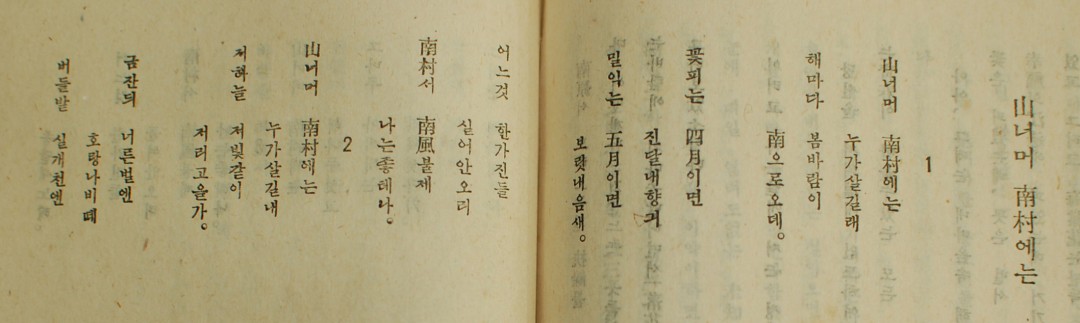 山너머 南村에는
1
山너머 南村에는
누가살길래
해마다 봄바람이
南으로오데。
꽃피는 四月이면
진달내향긔
밀익는 五月이면
보릿내음새。
어느것 한가진들
실어안오리
南村서 南風불제
나는좋데나。
2
山너머 南村에는
누가살길내
저하늘 저빛갈이
저리고을가。
금잔듸 너른벌엔
호랑나비떼
버들밭 실개천엔